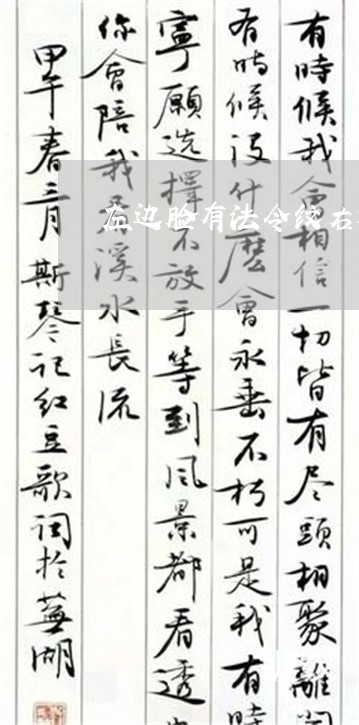 有時候我會相信一切皆有尽頭相聚離
有時候没什麼會永垂不朽可是我有時
寧願选擇不放手等到风景都看透
你會陪我看溪水長流
甲午春三月斯琴记红豆歌词於蕪湖
左边脸有法令纹右